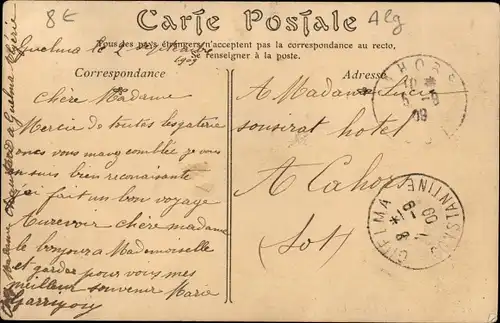 8€
Alg
Carte Postale
Tous les pays étrangers n'acceptent pas la correspondance au recto,
Se renseigner à la poste.
Guelma le 2 Septembre
1909
Correspondance
Chère Madame
Mercie de toutes les gaterie
vous mang comblée je vous
suis bien reconaisante
j'ai fait un bon voyage
Aurevoir chère madame
le bonjour a Mademoiselle
et garder pour vous mes
meilleur souvenir Marie
Garrigou
a Guelma Algérie
Adresse
A Madame Lucie
sousirat hotel
A Cahors
(Lot)
GUELMA
CONSTANTINE